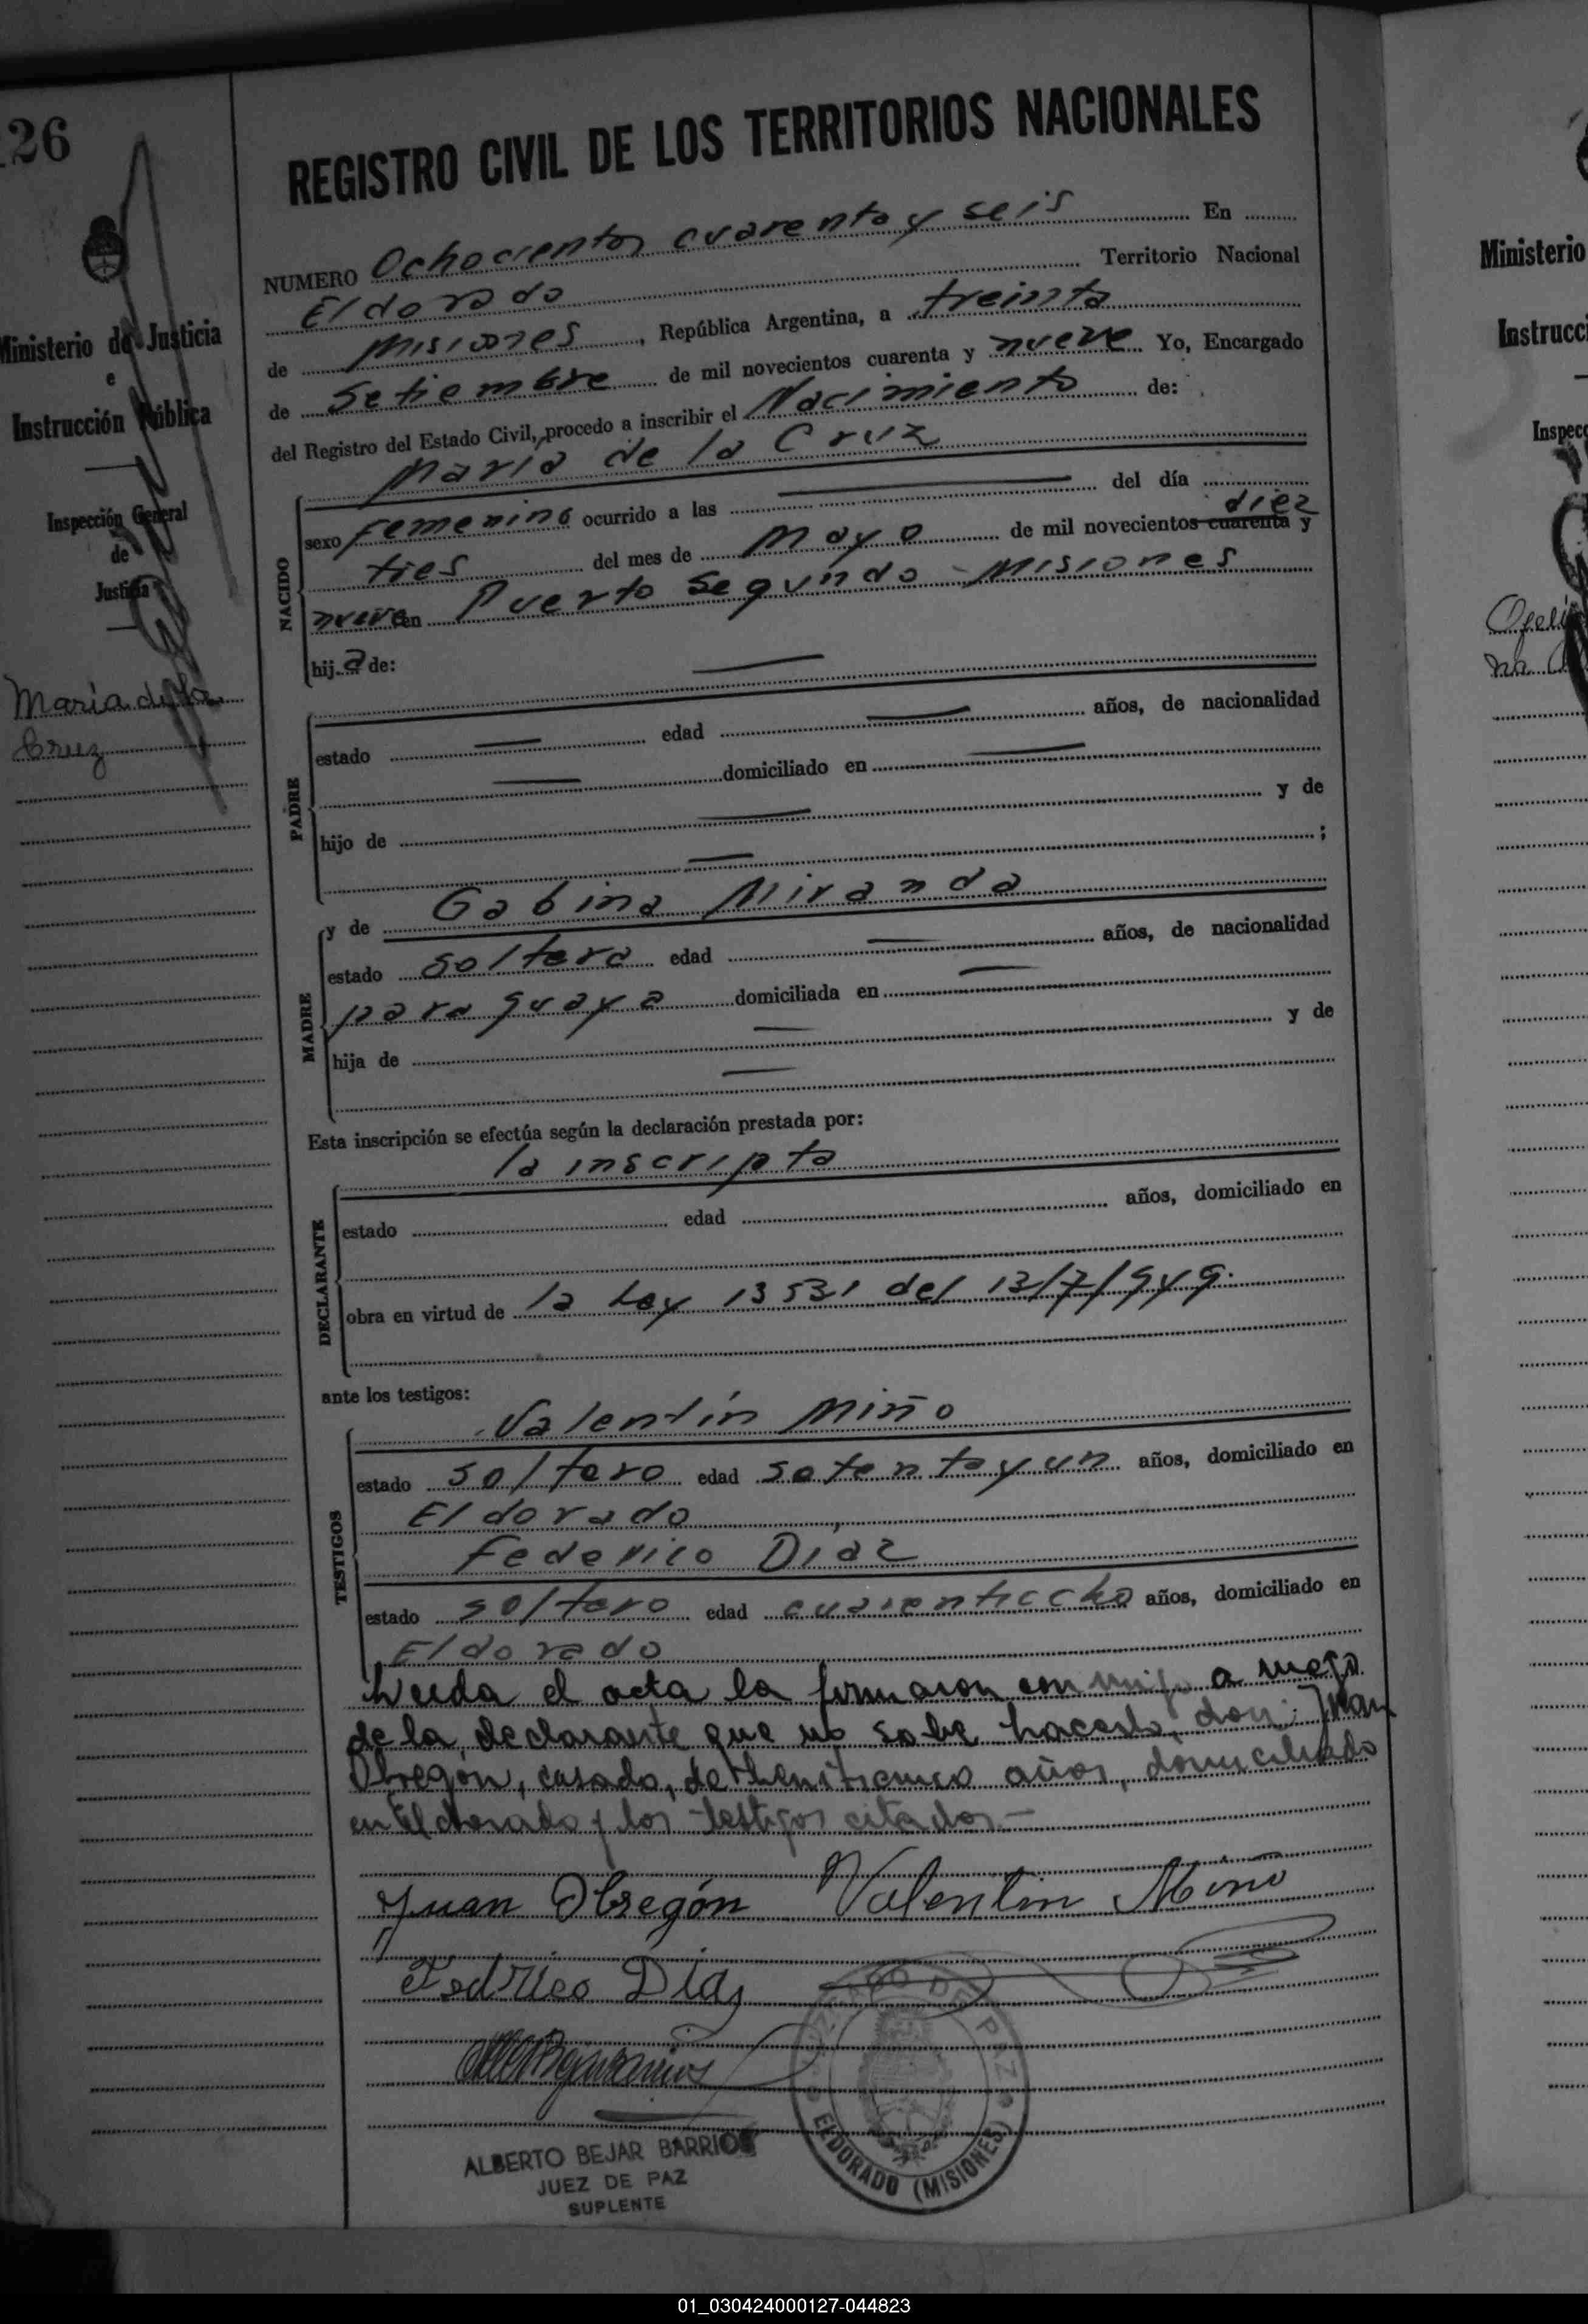 126
REGISTRO CIVIL DE LOS TERRITORIOS NACIONALES
NUMERO Ochocientos cuarenta y seis En
Eldorado Territorio Nacional
de Misiones, República Argentina, a treinta
de Setiembre de mil novecientos cuarenta y nueve Yo, Encargado
del Registro del Estado Civil, procedo a inscribir el Nacimiento de:
María de la Cruz
NACIDO
sexo femenino ocurrido a las — del día
tres del mes de mayo de mil novecientos cuarenta diez y
nueve en Puerto Segundo - Misiones
hij a de:
—
PADRE
estado — edad — años, de nacionalidad
— domiciliado en —
hijo de — y de
— ;
MADRE
y de Gabina Miranda
estado soltera edad — años, de nacionalidad
paraguaya domiciliada en —
hija de — y de
—
Esta inscripción se efectúa según la declaración prestada por:
la inscripta
DECLARANTE
estado edad años, domiciliado en
obra en virtud de la Ley 13531 del 13/7/949.
ante los testigos:
TESTIGOS
Valentín Miño
estado soltero edad setentayun años, domiciliado en
Eldorado
Federico Diaz
estado soltero edad años, domiciliado en
Eldorado
Leida el acta la firmaron conmigo a ruego
de la declarante que no sabe hacerlo, don: Juan
Obregon, casado, de años, domiciliado
en Eldorado y los testigos citados.—
Juan Obregón Valentin Miño
Fedrico Diaz
ALBERTO BEJAR BARRIOS
JUEZ DE PAZ
SUPLENTE
JUZGADO DE PAZ
ELDORADO (MISIONES)
Ministerio de Justicia
e
Instrucción Pública
Inspección General
de
Justicia
María de la
Cruz
Ministerio
Instrucci
Inspecc
Ofeli
na
01_030424000127-044823